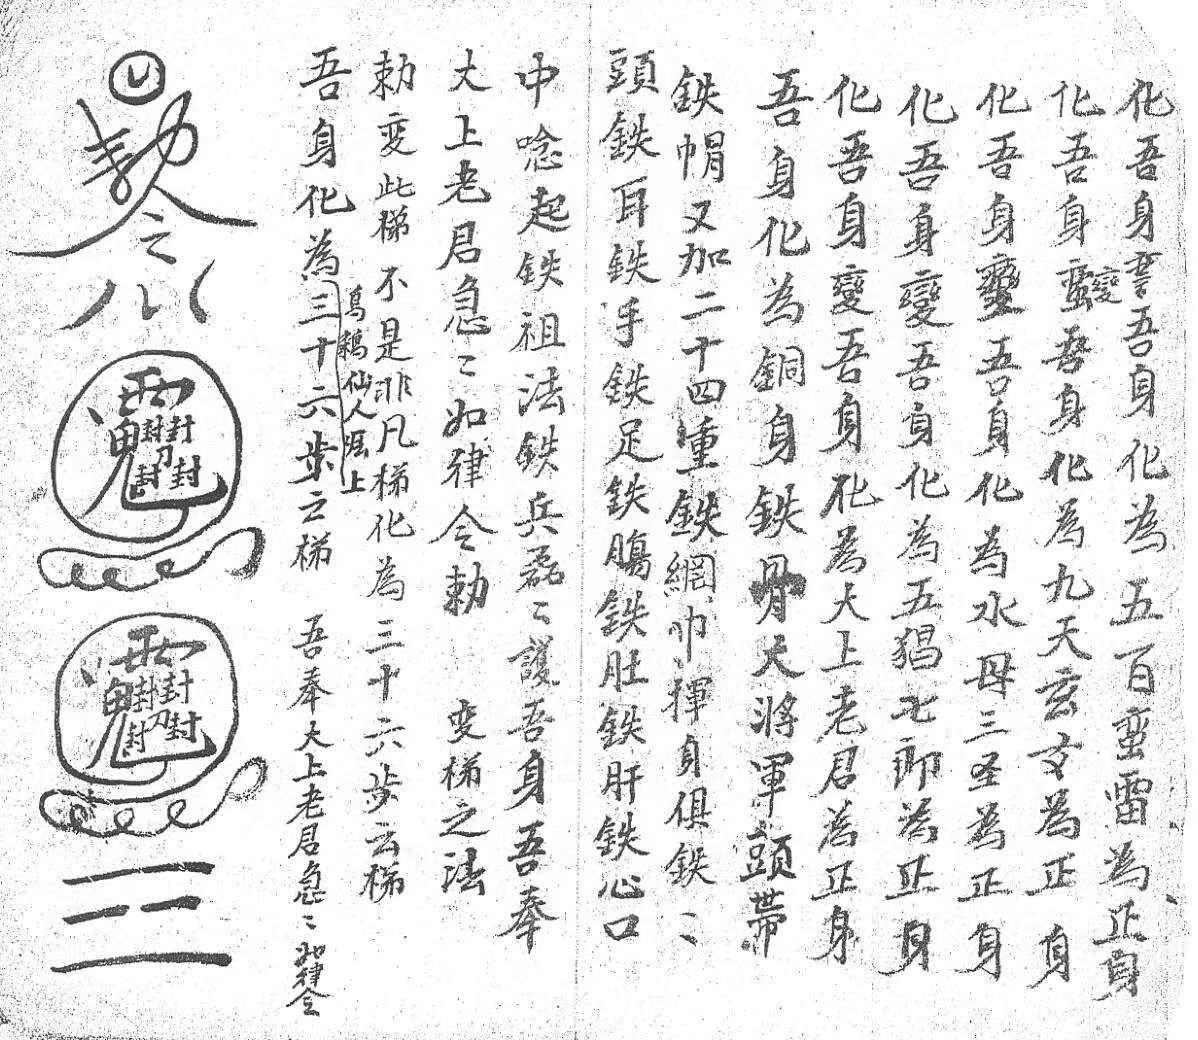 化吾身變吾身化為五百蛮雷為正身
化吾身蛮變吾身化為九天玄女為正身
化吾身變吾身化為水母三圣為正身
化吾身變吾身化為五猖七郎為正身
化吾身變吾身化為大上老君為正身
吾身化為銅身鉄骨大將軍頭帶
鉄帽又加二十四重鉄網巾褌身俱鉄〻
頭鉄耳鉄手鉄足鉄腸鉄肚鉄肝鉄心口
中唸起鉄祖法鉄兵磊〻護吾身吾奉
大上老君急〻如律令勅 变梯之法
勅变此梯不是非凡梯化為三十六步云梯
仙人 上
吾身化為三十六步云梯 吾奉大上老君急〻如律令